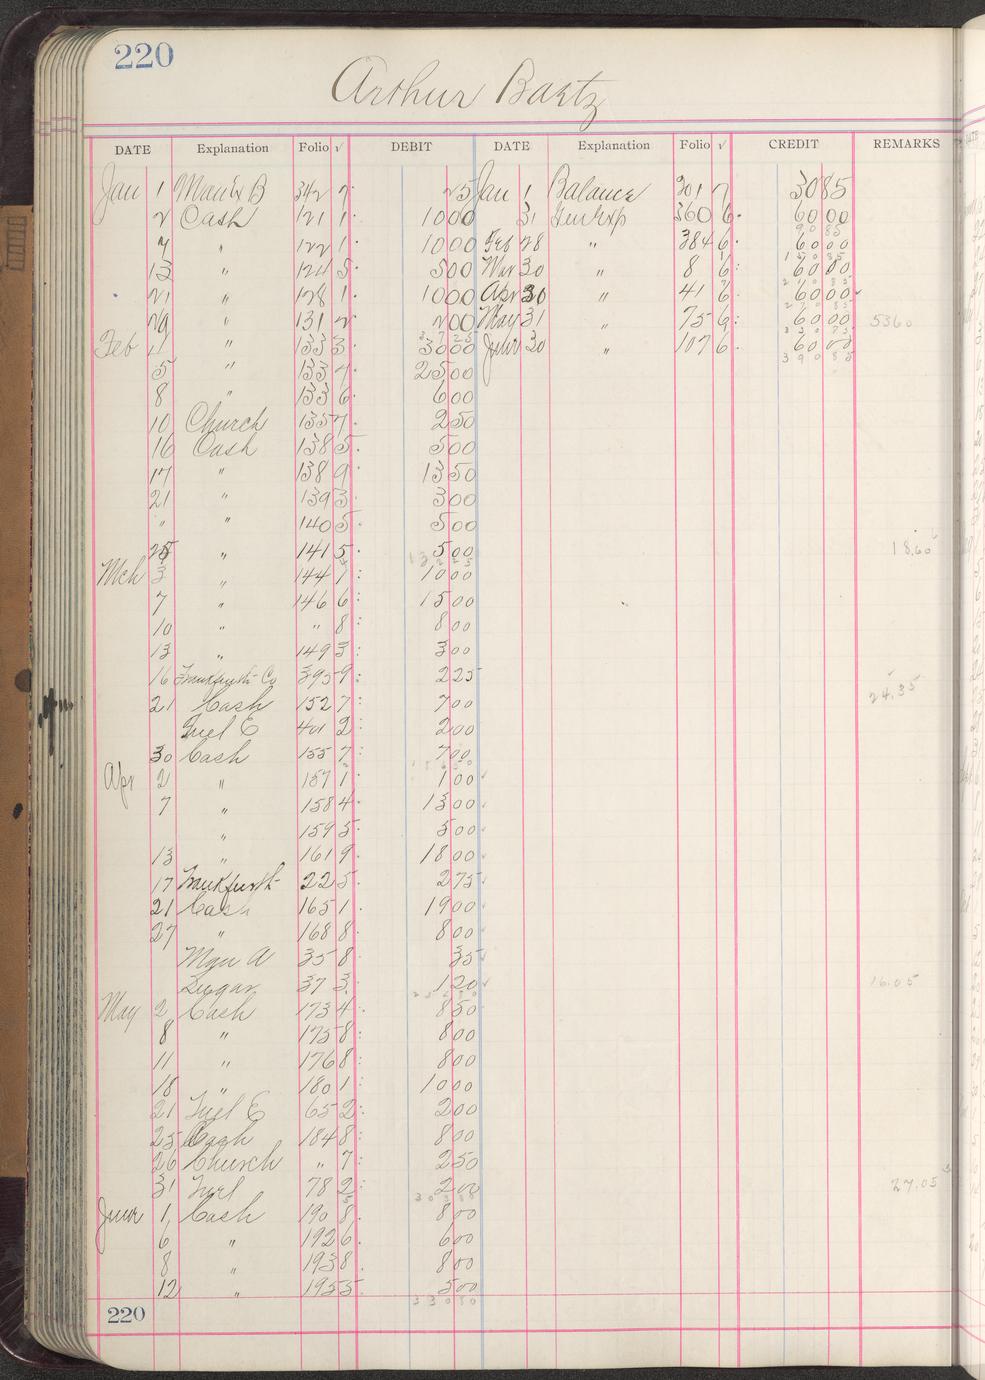 220
Arthur Bartz
DATE Explanation Folio √ DEBIT DATE Explanation Folio √ CREDIT REMARKS
Jan 1 Man Ex B 342 7 25 Jan 1 Balance 301 7 3085
2 Cash 121 1 1000 31 Gen Exp 360 6 6000
7 " 122 1 1000 Feb 28 " 384 6 6000
13 " 124 5 500 Mar 30 " 8 6 6000
21 " 128 1 1000 Apr 30 " 41 6 6000
29 " 131 2 200 May 31 " 75 6 6000 5360
Feb 4 " 133 3 3000 June 30 " 107 6 6000
5 " 133 7 2500
8 " 133 6 600
10 Church 135 7 250
16 Cash 138 5 500
17 " 138 9 1350
21 " 139 3 300
" " 140 5 500
25 " 141 5 500 18.60
Mch 3 " 144 7 1000
7 " 146 6 1500
10 " " 8 800
13 " 149 3 300
16 Frankfurth Co 395 9 225
21 Cash 152 7 700 24.35
Fuel E 401 2 200
30 Cash 155 7 700
Apr 2 " 157 1 100
7 " 158 4 1300
" 159 5 500
13 " 161 9 1800
17 Frankfurth 22 5 275
21 Cash 165 1 1900
27 " 168 8 800
Mgn A 35 8 35
Sugar 37 3 120 16.05
May 2 Cash 173 4 850
8 " 175 8 800
11 " 176 8 800
18 " 180 1 1000
21 Fuel E 65 2 200
25 Cash 184 8 800
26 Church " 7 250
31 Fuel 78 2 200 27.05
June 1 Cash 190 8 800
6 " 192 6 600
8 " 193 8 800
12 " 195 5 500
220